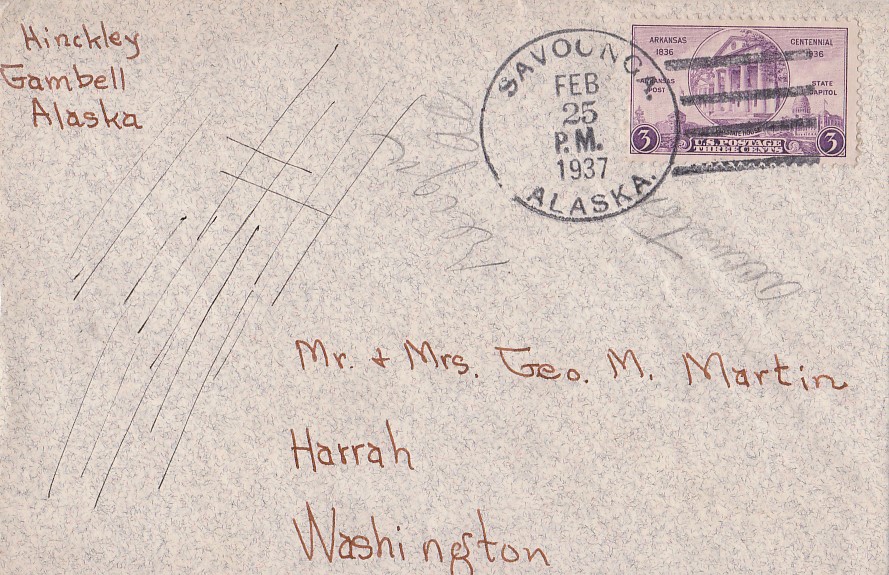 Hinckley
Gambell
Alaska
SAVOONGA
FEB
25
P.M.
1937
ALASKA.
ARKANSAS
1836
CENTENNIAL
1936
ARKANSAS
POST
STATE
CAPITOL
3
U.S. POSTAGE
THREE CENTS
3
Mr. + Mrs. Geo. M. Martin
Harrah
Washington